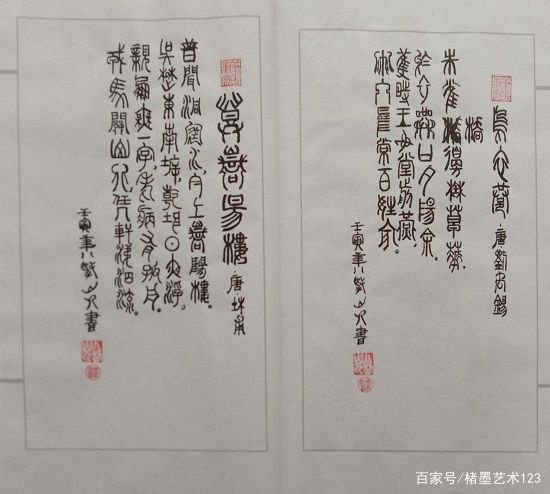 烏衣巷 · 唐 劉禹錫
朱雀橋邊野草花,
烏衣巷口夕陽斜。
舊時王謝堂前燕,
飛入尋常百姓家。
壬寅年八山人書
登嶽陽樓 · 唐 杜甫
昔聞洞庭水,今上嶽陽樓。
吳楚東南坼,乾坤日夜浮。
親朋無一字,老病有孤舟。
戎馬關山北,憑軒涕泗流。
壬寅年八山人書
百家号/楮墨艺术123